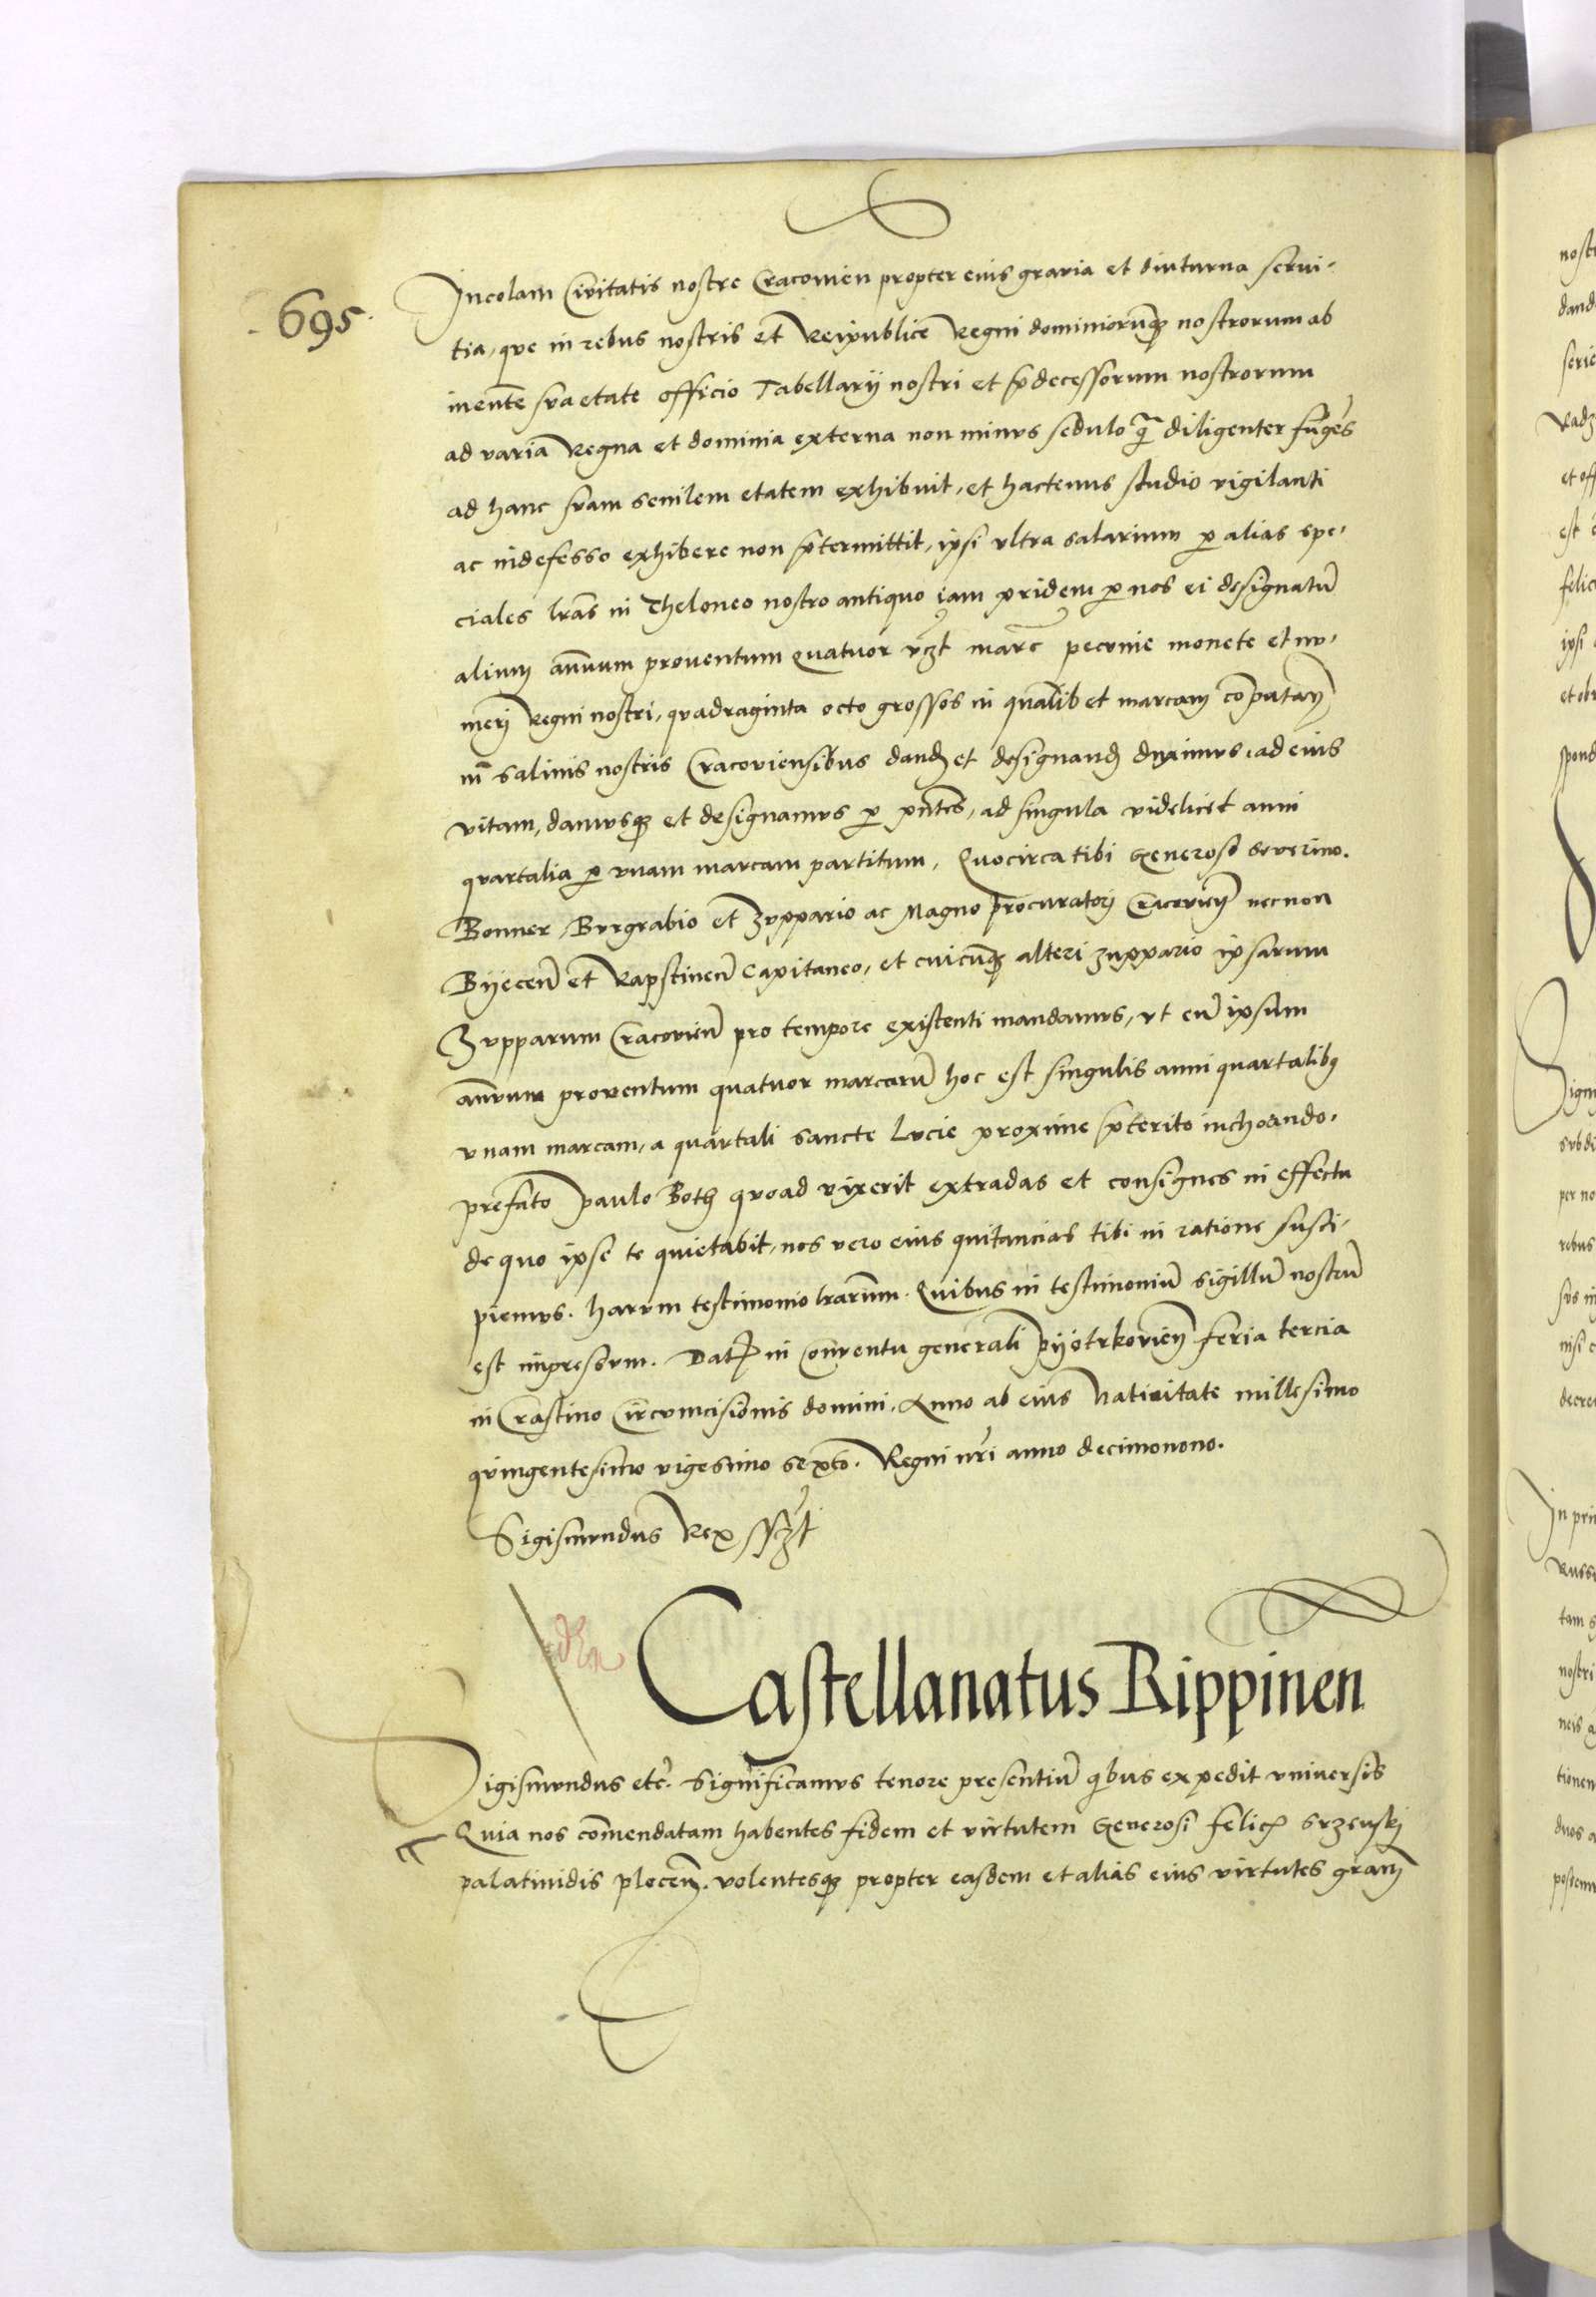 695
Incolam Civitatis nostre Cracovien propter eius gravia et diuturna servi-
tia, que in rebus nostris et Reipublice Regni dominiorumq nostrorum ab
iuente sua etate officio Tabellarii nostri et pdecessorum nostrorum
ad varia Regna et dominia externa non minus sedulo q diligenter funges
ad hanc suam senilem etatem exhibuit, et hactenus studio vigilanti
ac indefesso exhibere non ptermittit, ipsi ultra salarium p alias spe-
ciales lras in Theloneo nostro antiquo iam pridem p nos ei designatu
alium annuum proventum quatuor vczt marc pecunie monete et nu-
meri Regni nostri, quadraginta octo grossos in qualibet marcam computan
in salinis nostris Cracoviensibus dand et designand duximus, ad eius
vitam, damusq et designamus p pntes, ad singula videlicet anni
quartalia p unam marcam partitum. Quocirca tibi Generoso Severino
Bonner, Burgrabio et Zuppario ac Magno Procuratori Cracovien necnon
Byecen et Rapstinen Capitaneo, et cuicunq alteri zuppario ipsarum
Zupparum Cracovien pro tempore existenti mandamus, ut eu ipsum
annuum proventum quatuor marcaru hoc est singulis anni quartalibq
unam marcam, a quartali sancte Lucie proxime pterito inchoando.
prefato Paulo Both quoad vixerit extradas et consignes in effectu
de quo ipse te quietabit, nos vero eius quitancias tibi in ratione susci-
piemus. harum testimonio lrarum. Quibus in testimoniu sigillu nostru
est impressum. Dat in Conventu generali Pyotrkovien feria tercia
in Crastino Circumcisionis domini, Anno ab eius Nativitate millesimo
quingentesimo vigesimo sexto. Regni nri anno decimonono.
Sigismundus Rex sszt
Castellanatus Rippinen
Sigismundus etc. Significamus tenore presentiu qibus expedit universis
Quia nos comendatam habentes fidem et virtutem Generosi Felic Srzenski
palatinidis plocen. volentesq propter easdem et alias eius virtutes gram